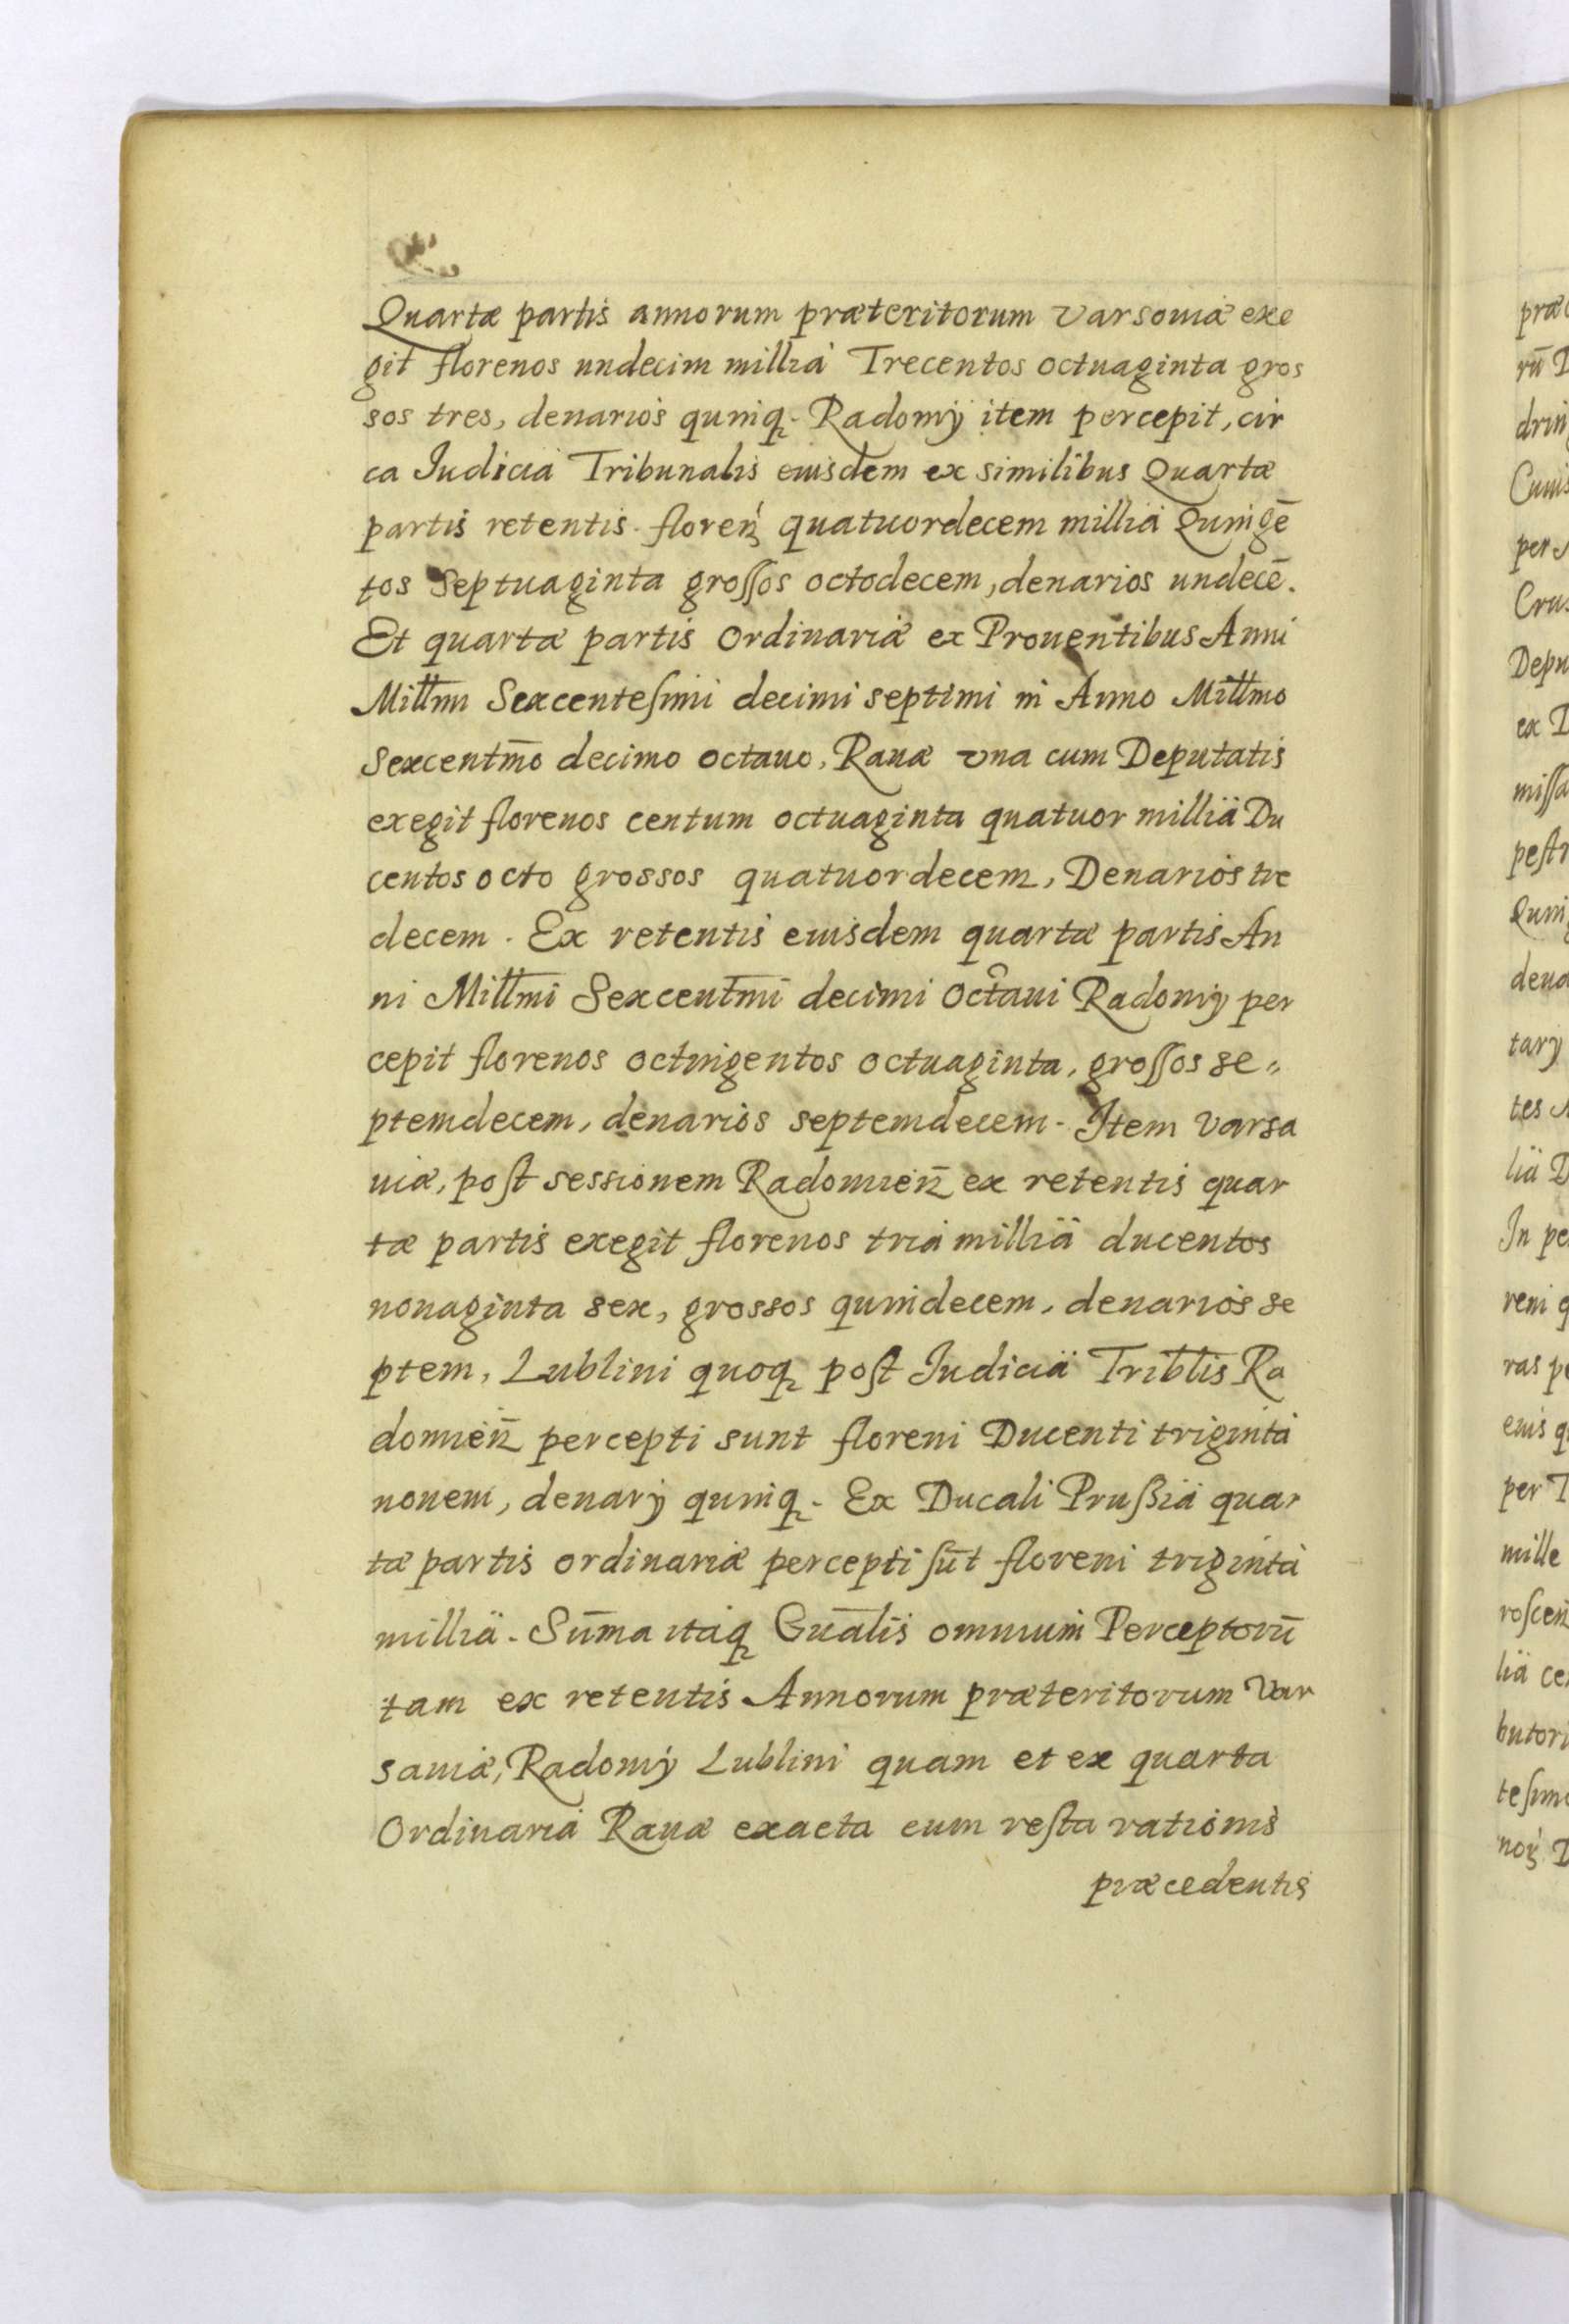 Quartæ partis annorum præteritorum Varsouiæ exe
git florenos undecim millia Trecentos octuaginta gros
sos tres, denarios quinq. Radomij item percepit, cir
ca Iudicia Tribunalis eiusdem ex similibus Quartæ
partis retentis. floreń quatuordecem millia Quingē
tos Septuaginta groſſos octodecem, denarios undecē.
Et quartæ partis Ordinariæ ex Prouentibus Anni
Millmi Sexcenteſimi decimi septimi in Anno Millmo
Sexcentm̄o decimo octauo, Rauæ vna cum Deputatis
exegit florenos centum octuaginta quatuor millia Du
centos octo grossos quatuordecem, Denarios tre
decem. Ex retentis eiusdem quartæ partis An
ni Millmi Sexcentm̄i decimi Octaui Radomij per
cepit florenos octingentos octuaginta, groſſos se„
ptemdecem, denarios septemdecem. Item Varsa
uiæ, poſt sessionem Radomień ex retentis quar
tæ partis exegit florenos tria millia ducentos
nonaginta sex, grossos quindecem, denarios se
ptem, Lublini quoq poſt Iudicia Triblis Ra
domień percepti sunt floreni Ducenti triginta
nouem, denarij quinq. Ex Ducali Pruſsia quar
tæ partis ordinariæ percepti ſūt floreni triginta
millia. Sūma itaq Gūalis omnium Perceptorū
tam ex retentis Annorum præteritorum Var
sauiæ, Radomij Lublini quam et ex quarta
Ordinaria Rauæ exacta cum reſta rationis
præcedentis